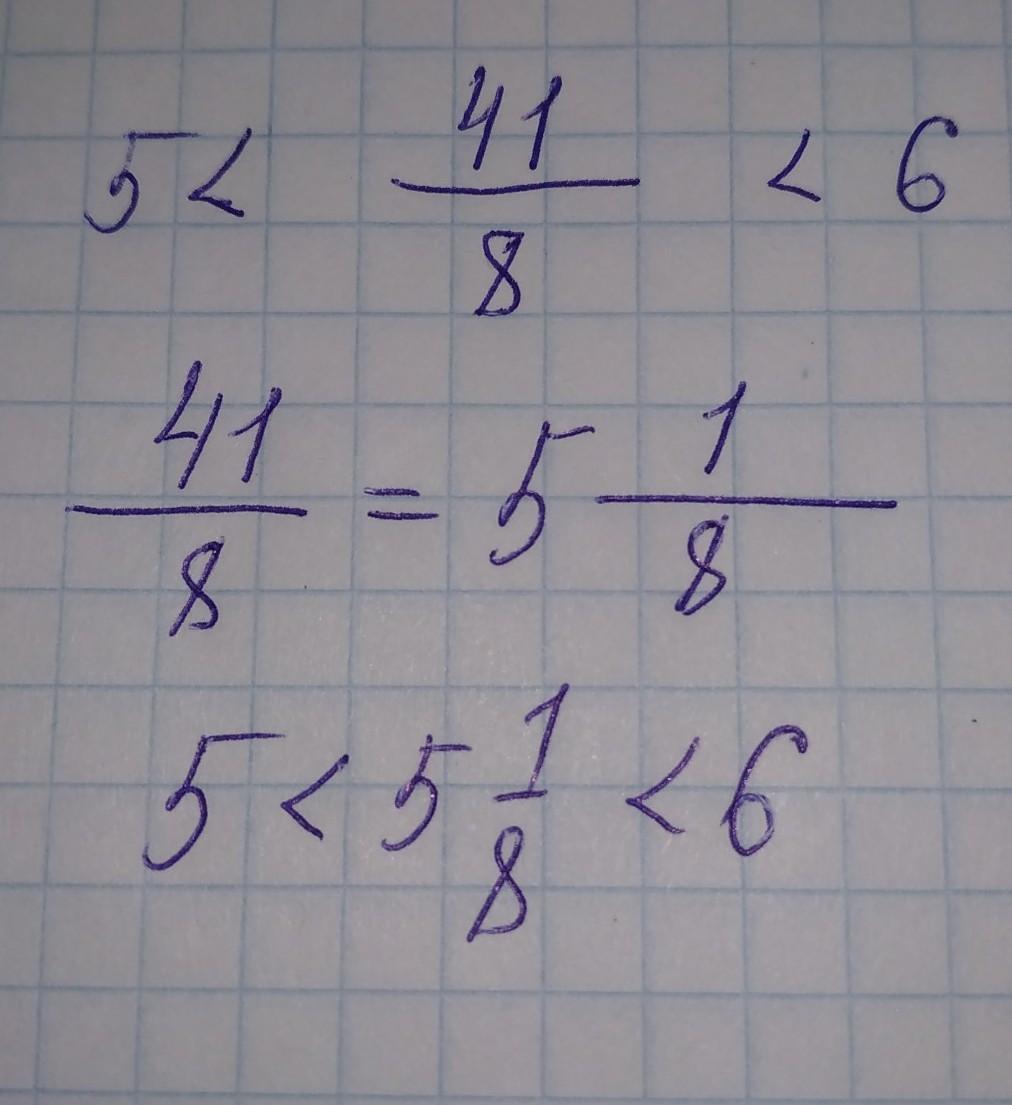 5 < 41/8 < 6
41/8 = 5 1/8
5 < 5 1/8 < 6